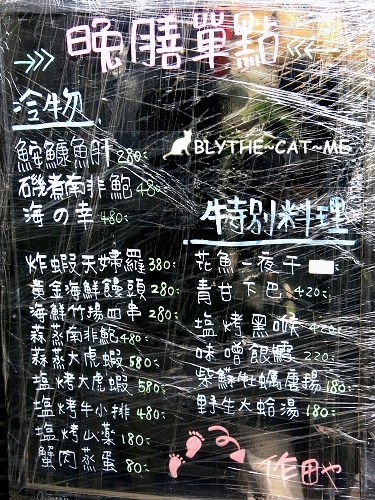 晚膳單點
冷物
鮟鱇魚肝 280
磯煮南非鮑 480
海の幸 480
BLYTHE~CAT~ME
特別料理
炸蝦天婦羅 380
黃金海鮮饅頭 280
海鮮竹揚四串 280
蒜蒸南非鮑 480
蒜蒸大虎蝦 580
塩烤大虎蝦 580
塩烤牛小排 480
塩烤山藥 180
蟹肉蒸蛋 80
花魚一夜干
青甘下巴 420
塩烤黑喉 420
味噌銀鱈 220
紫蘇牡蠣唐揚 180
野生大蛤湯 180
作田や